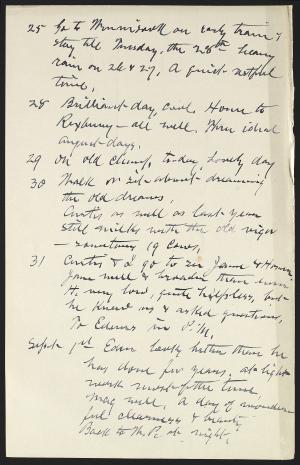 25 Go to Munnisunk on early train &
stay till Tuesday, the 28th heavy
rain on 26 & 27. A quiet restful
time,
28 Brilliant day, cool. Home to
Roxbury - all well. Three ideal
august days.
29 On old Clump, to-day, lovely day
30 Walk or sit about - dreaming
the old dreams.
Curtis as well as last year
Still milks with the old vigor
- sometimes 19 cows,
31 Curtis & I go to see Jane & Homer
Jane well & broader than ever
H. very low, quite helpless, but
he knew us & asked questions,
To Edens in P.M.
Sept- 1st Eden looks better than he
has done for years, at light
work most of the time,
Mag well. A day of wonder-
ful clearness & beauty
Back to the R. at night.